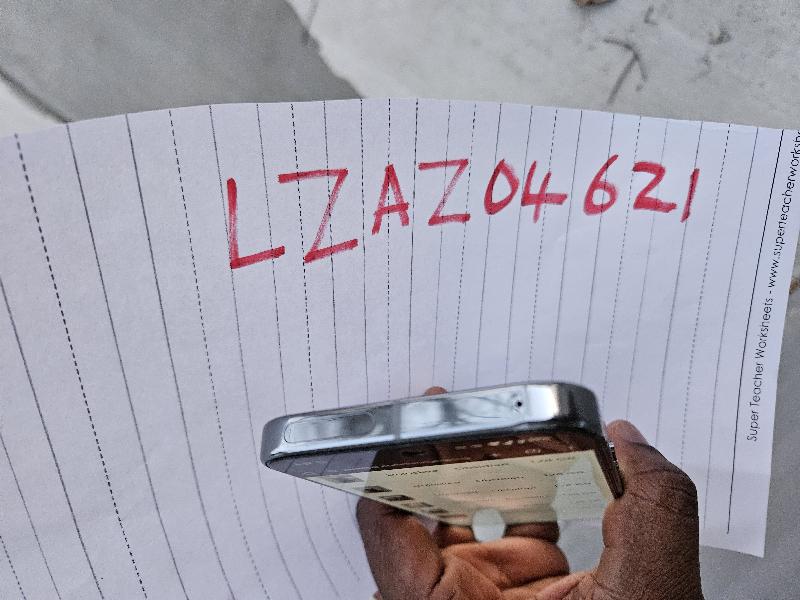 LZAZ04621
Super Teacher Worksheets - www.superteacherworksh